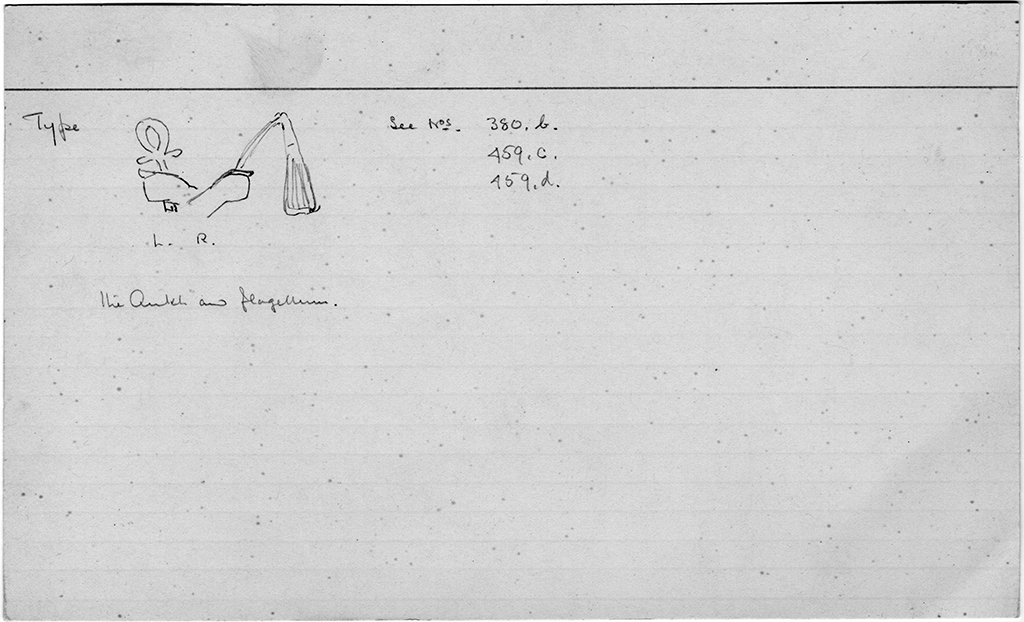 Type
See Nos. 380. b.
459. c.
459. d.
L. R.
The Ankh and flagellum.